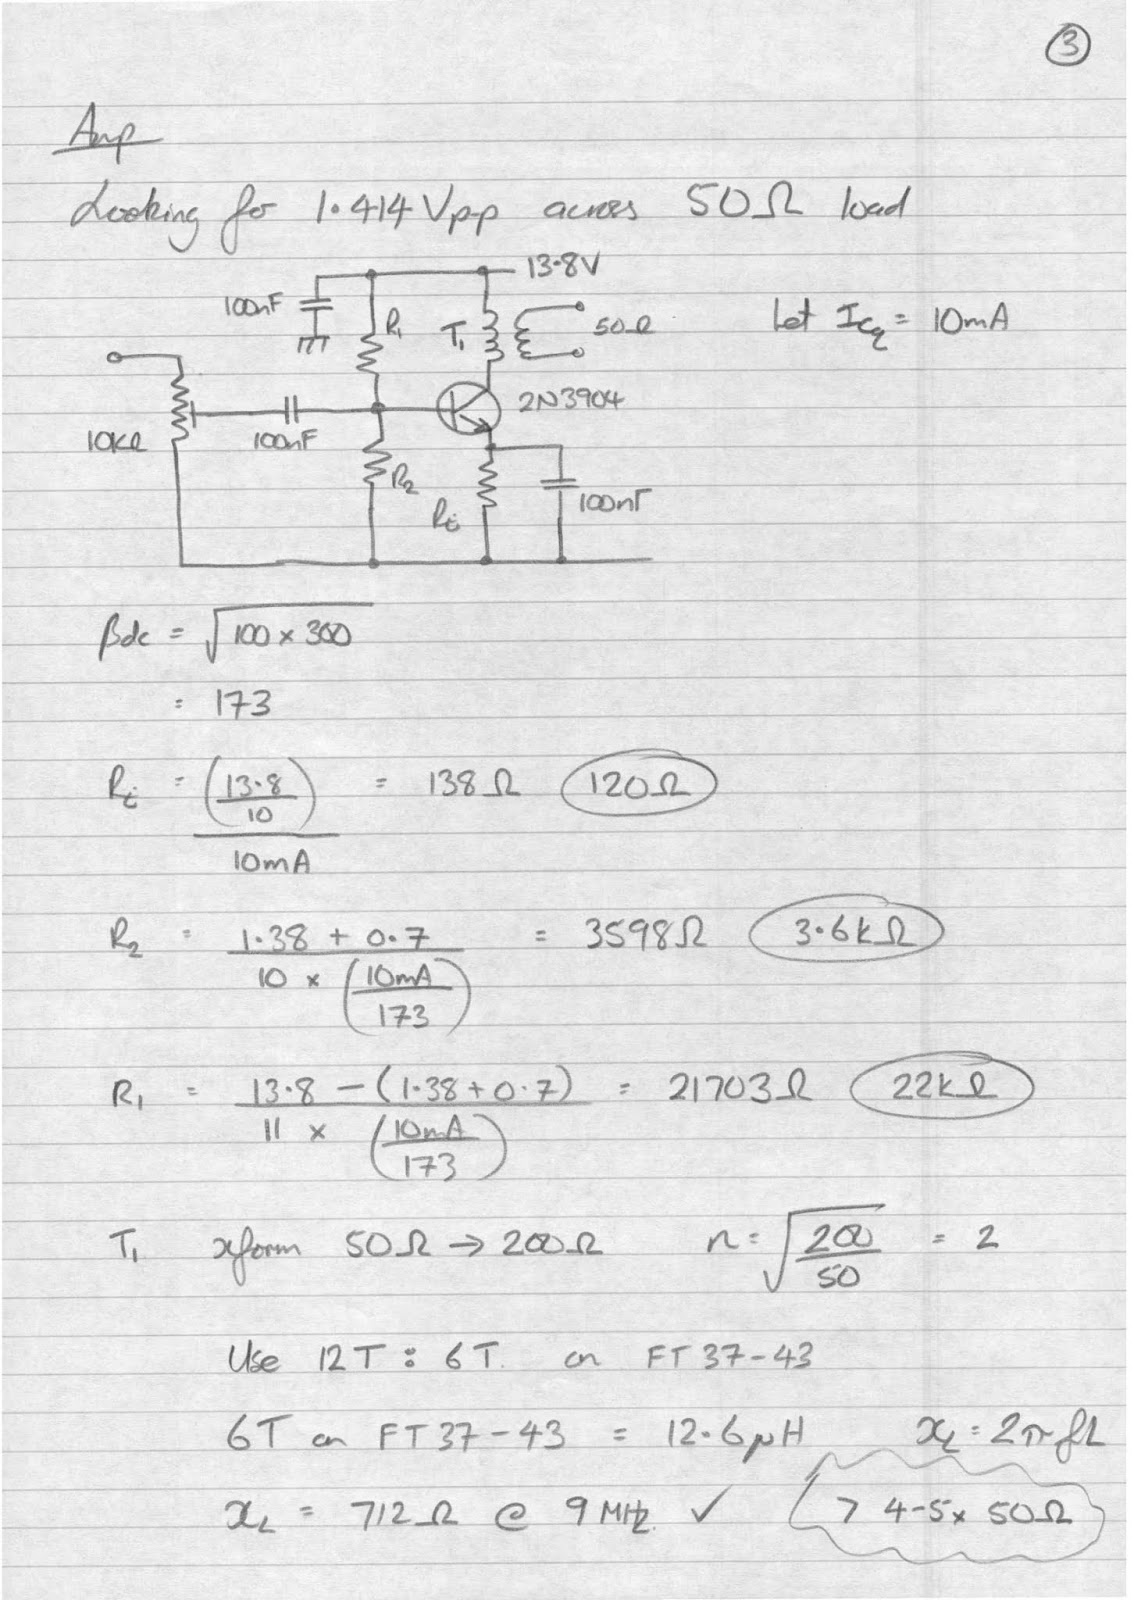 3
Amp
Looking for 1.414 Vp-p across 50Ω load
13.8V
100nF
R1
T1
50Ω
Let ICq = 10mA
2N3904
10kΩ
100nF
R2
Re
100nF
βdc = √(100 × 300)
= 173
Re = (13.8/10) / 10mA = 138Ω 120Ω
R2 = (1.38 + 0.7) / (10 × (10mA/173)) = 3598Ω 3.6kΩ
R1 = (13.8 – (1.38 + 0.7)) / (11 × (10mA/173)) = 21703Ω 22kΩ
T1 xform 50Ω → 200Ω n = √(200/50) = 2
Use 12T : 6T on FT37-43
6T on FT37-43 = 12.6μH xL = 2πfL
xL = 712Ω @ 9MHz. ✓ > 4-5x 50Ω